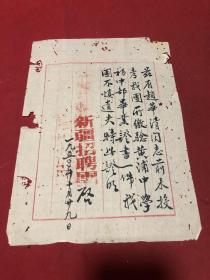 兹有赵华清同志前来投
考我团所缴验黄浦中学
初中部毕业证书一件找
因不慎遗失特此证明
新疆招聘团 启
一九五〇年十月廿九日